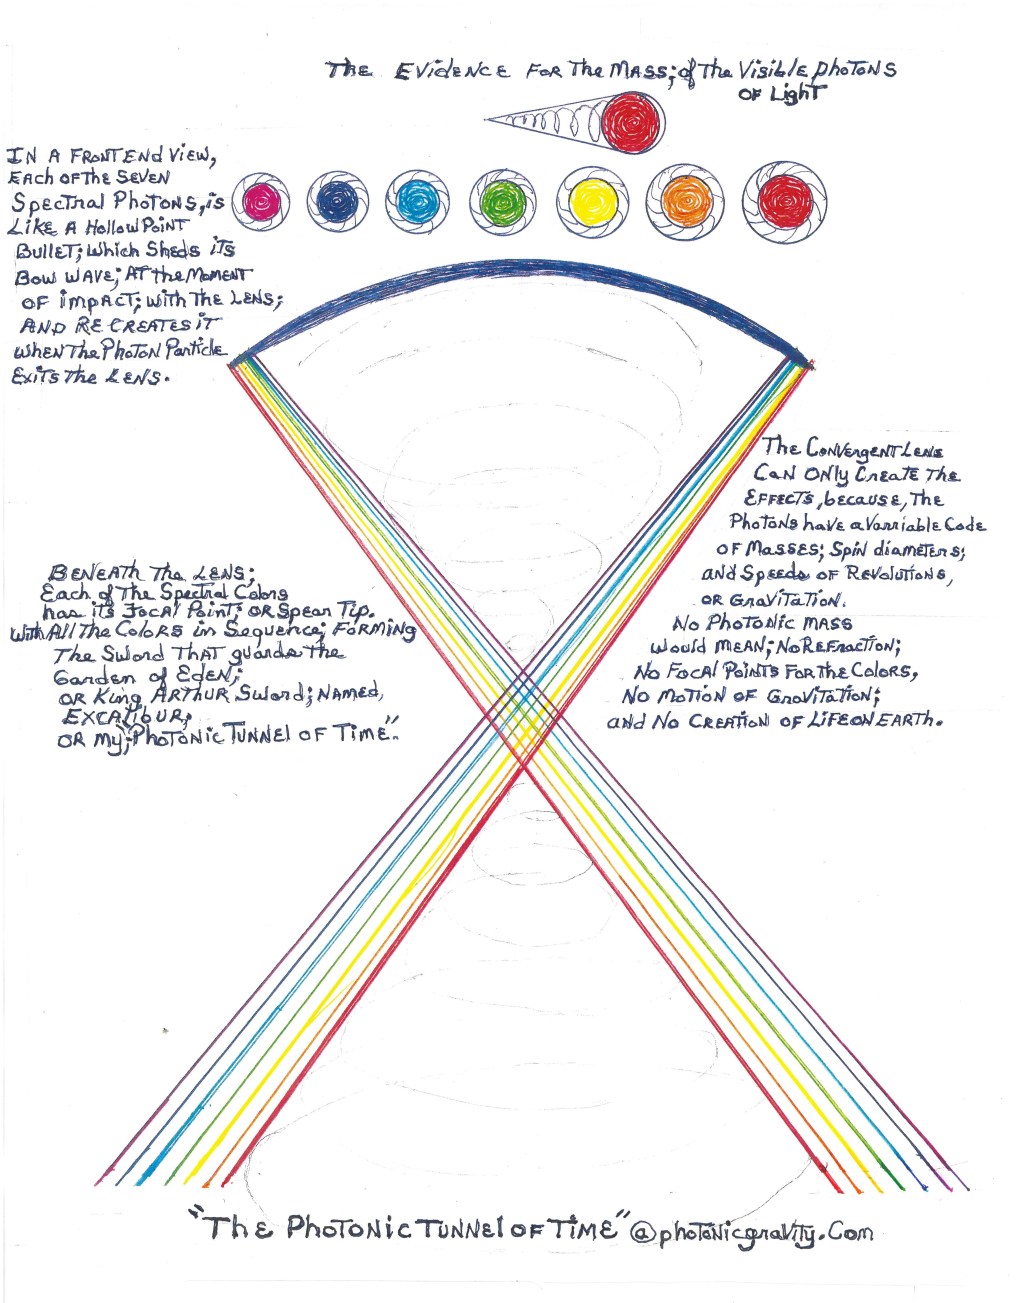 THE EVIDENCE FOR THE MASS; of THE VISIBLE PHOTONS
OF LIGHT
IN A FRONT END VIEW,
EACH OF THE SEVEN
SPECTRAL PHOTONS, is
LIKE A HOLLOW POINT
BULLET; WHICH SHEDS ITS
BOW WAVE; AT THE MOMENT
OF IMPACT; WITH THE LENS;
AND RE CREATES IT
WHEN THE PHOTON PARTICLE
EXITS THE LENS.
The Convergent Lens
CAN ONLY CREATE THE
EFFECTS, because, THE
Photons have a Varriable Code
OF MASSES; SPIN diameters;
and Speeds OF REVOLUTIONS,
OR GRAVITATION.
NO PHOTONIC MASS
would MEAN; NO REFRACTION;
NO FOCAL POINTS FOR THE COLORS,
NO MOTION OF GRAVITATION;
and NO CREATION OF LIFE ON EARTH.
BENEATH THE LENS;
Each of The Spectral Colors
has its FOCAL POINT; OR Spear Tip.
With All The COLORS in Sequence; FORMING
THE SWORD THAT guards the
Garden of EDEN;
OR King ARTHUR SWORD; NAMED,
EXCALIBUR,
OR My; "PHOTONIC TUNNEL OF TIME".
"THE PHOTONIC TUNNEL OF TIME" @photonicgravity.Com